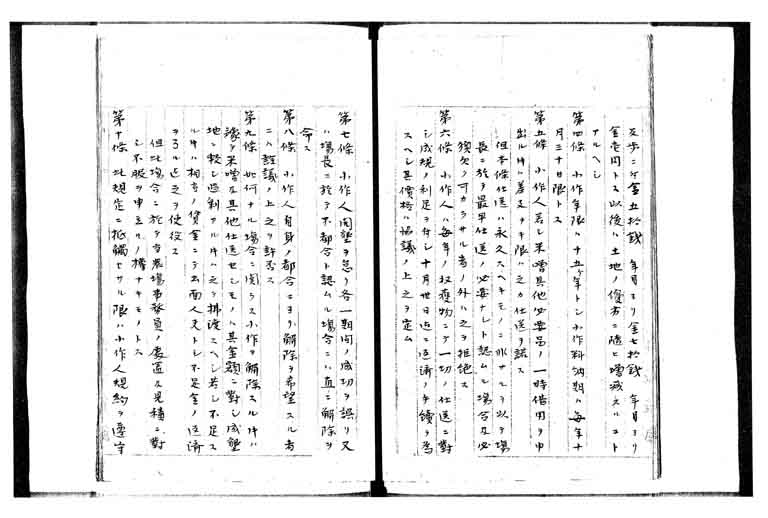 反歩ニ付金五拾銭 年目ヨリ金七拾銭 年目ヨリ
金壱円トス以後ハ土地ノ優劣ニ随ヒ増減スルコト
アルヘシ
第四條 小作年限ハ十五ヶ年トシ小作料納期ハ毎年十
月三十日限トス
第五條 小作人若シ米噌其他必要品ノ一時借用ヲ申
出ル片ハ差支ナキ限ハ之カ仕送ヲ諾ス
但本條仕送ハ永久スヘキモノニ非サルヲ以テ場
長ニ於テ最早仕送ノ必要ナシト認ムル場合及必
須欠ク可カラサル者ノ外ハ之ヲ拒絶ス
第六條 小作人ハ毎年ノ収穫物ニテ一切ノ仕送ニ対
シ成規ノ利足ヲ付シ十月卅日迄ニ返済ノ手續ヲ為
スヘシ其價格ハ協議ノ上之ヲ定ム
第七條 小作人開墾ヲ怠リ各一期間ノ成功ヲ誤リ又
ハ場長ニ於テ不都合ト認ムル場合ニハ直ニ解除ヲ
命ス
第八條 小作人自身ノ都合ニヨリ解除ヲ希望スル者
ニハ詮議ノ上之ヲ許否ス
第九條 如何ナル場合ニ関ラス小作ヲ解除スル片ハ
嚢ニ米噌及其他仕送セシモノハ其金額ニ對シ成墾
地ニ較シ過剰アル片ハ之ヲ拂渡スヘシ若シ不足ス
ル片ハ相当ノ賃金ニテ出面人夫トシ不足金ノ返済
ヲ了ル迄之ヲ使役ス
但此場合ニ於テ当農場事務員ノ處置及見積ニ對
シ不服ヲ申立ルノ権ナキモノトス
第十條 此規定ニ抵觸セサル限ハ小作人規約ヲ遵守